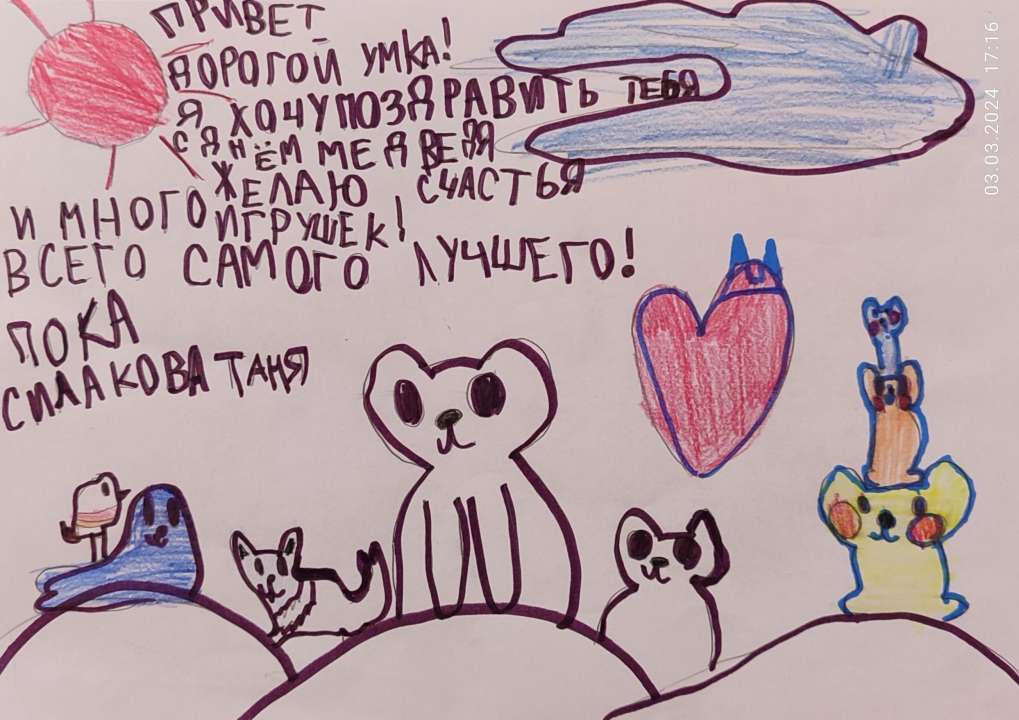 ПРИВЕТ
ДОРОГОЙ УМКА!
Я ХОЧУ ПОЗДРАВИТЬ ТЕБЯ
С ДНЁМ МЕДВЕДЯ
ЖЕЛАЮ СЧАСТЬЯ
И МНОГО ИГРУШЕК!
ВСЕГО САМОГО ЛУЧШЕГО!
ПОКА
СИЛАКОВА ТАНЯ
03.03.2024 17:16